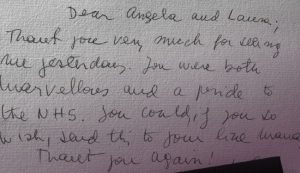 Dear Angela and Laura,
Thank you very much for seeing
me yesterday. You were both
marvellous and a pride to
the NHS. You could, if you so
wish, send this to your line mana
Thank you again!